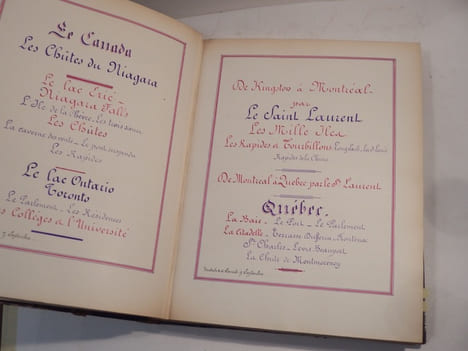 Le Canada
Les Chûtes du Niagara
Le lac Erié -
Niagara Falls
L'Ile de la Chèvre. Les trois sœurs
Les Chûtes
La caverne des vents - Le pont suspendu
Les Rapides
Le lac Ontario
Toronto
Le Parlement - Les Résidences
es Collèges et l'Université
7 Septembre
De Kingston à Montréal -
par
Le Saint Laurent
Les Mille Iles
Les Rapides et Tourbillons
Rapides de la Chine
De Montréal à Québec par le St Laurent
Québec -
La Baie - Le Port - Le Parlement
La Citadelle - Terrasse Dufferin - Frontenac
St Charles - Levis Beauport
La Chute de Montmorency
9 Septembre